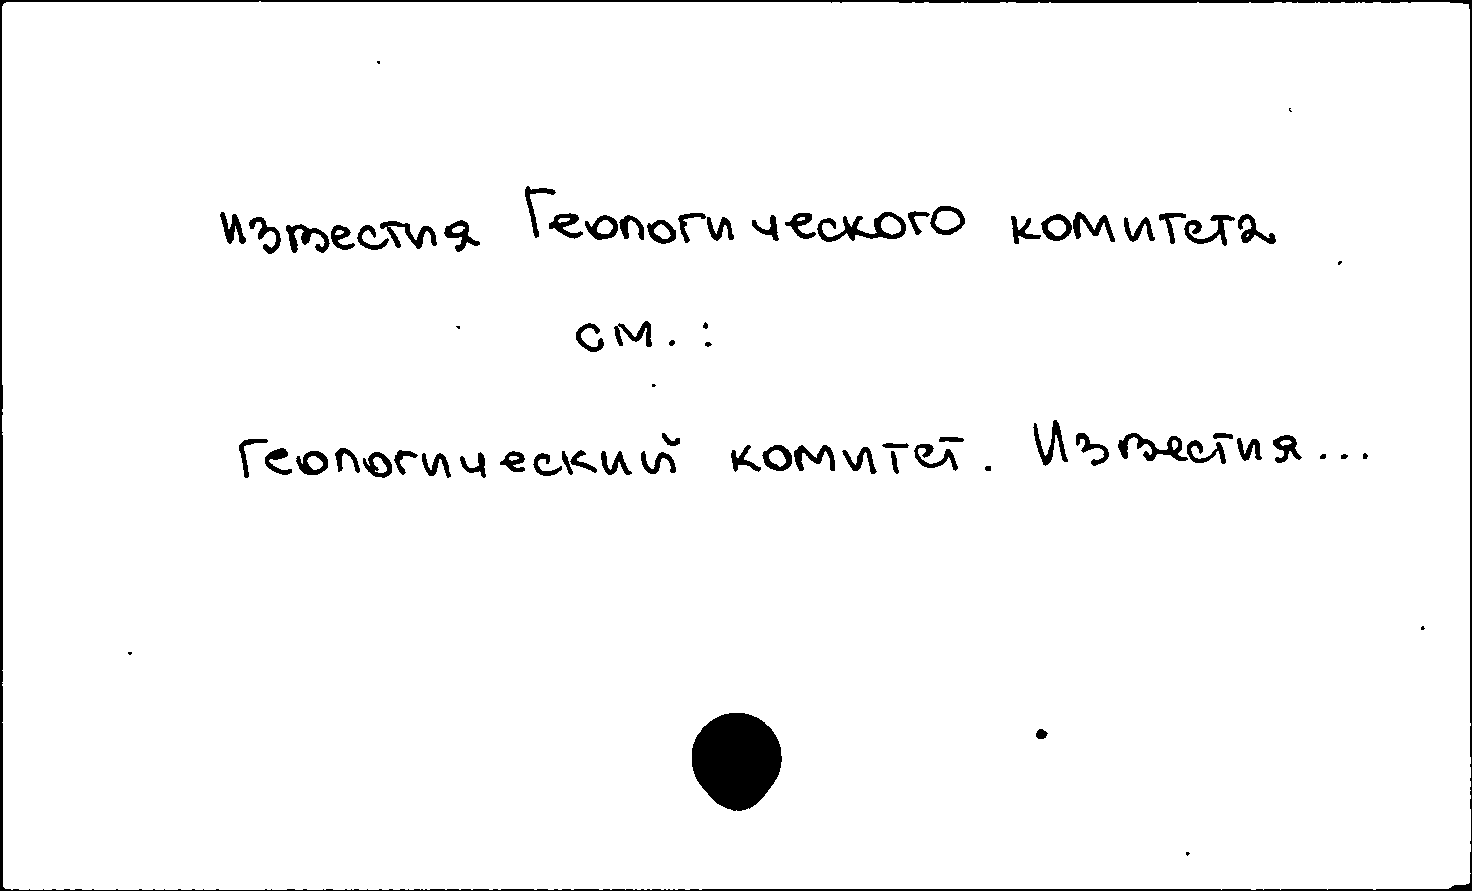 Известия Геологического комитета
см. :
Геологический комитет. Известия...